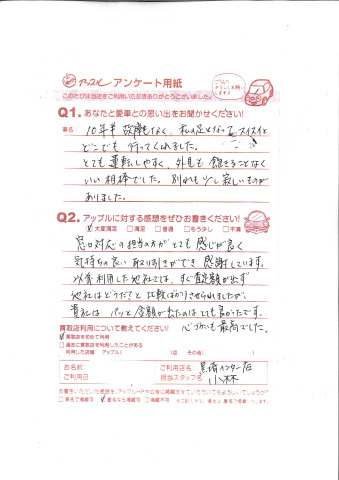 アップル アンケート用紙
このたびは当店をご利用いただきありがとうございました。
Q1. あなたと愛車との思い出をお聞かせください!
車名:
10年半 故障もなく、私の足となってスイスイと
どこでも 行ってくれました。
とても 運転しやすく、外見も 飽きることなく
いい相棒でした。別れも少し寂しいものが
ありました。
Q2. アップルに対する感想をぜひお書きください!
☑大変満足 □満足 □普通 □もう少し □不満
窓口対応の担当の方がとても 感じが良く
気持ちの良い取り引きができ 感謝しています。
以前利用した他社では、すぐ査定額が出ず
他社はどうだと 比較ばかりさせられましたが、
貴社は パッと 金額が出たのは とても良かったです。
心づかいも最高でした。
買取店利用について教えてください!
☑買取店を初めて利用
□過去に買取店を利用したことがある
利用した店舗: アップル( )店 その他( )
お名前:
ご利用店名: 黒埼インター店
ご利用日
担当スタッフ名 小林
お書きいただいた感想を、アップルHPや広告に掲載させていただいてもよろしいでしょうか?
□実名で掲載可 ☑匿名なら掲載可 □掲載不可